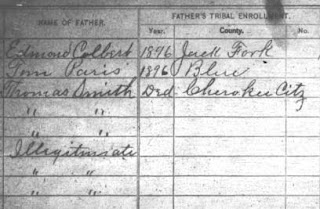 NAME OF FATHER. FATHER'S TRIBAL ENROLLMENT.
Year. County. No.
Edmond Colbert 1896 Jack Fork
Tom Paris 1896 Blue
Thomas Smith Ded Cherokee Citz
" "
" "
Illegitimate
" "
" "